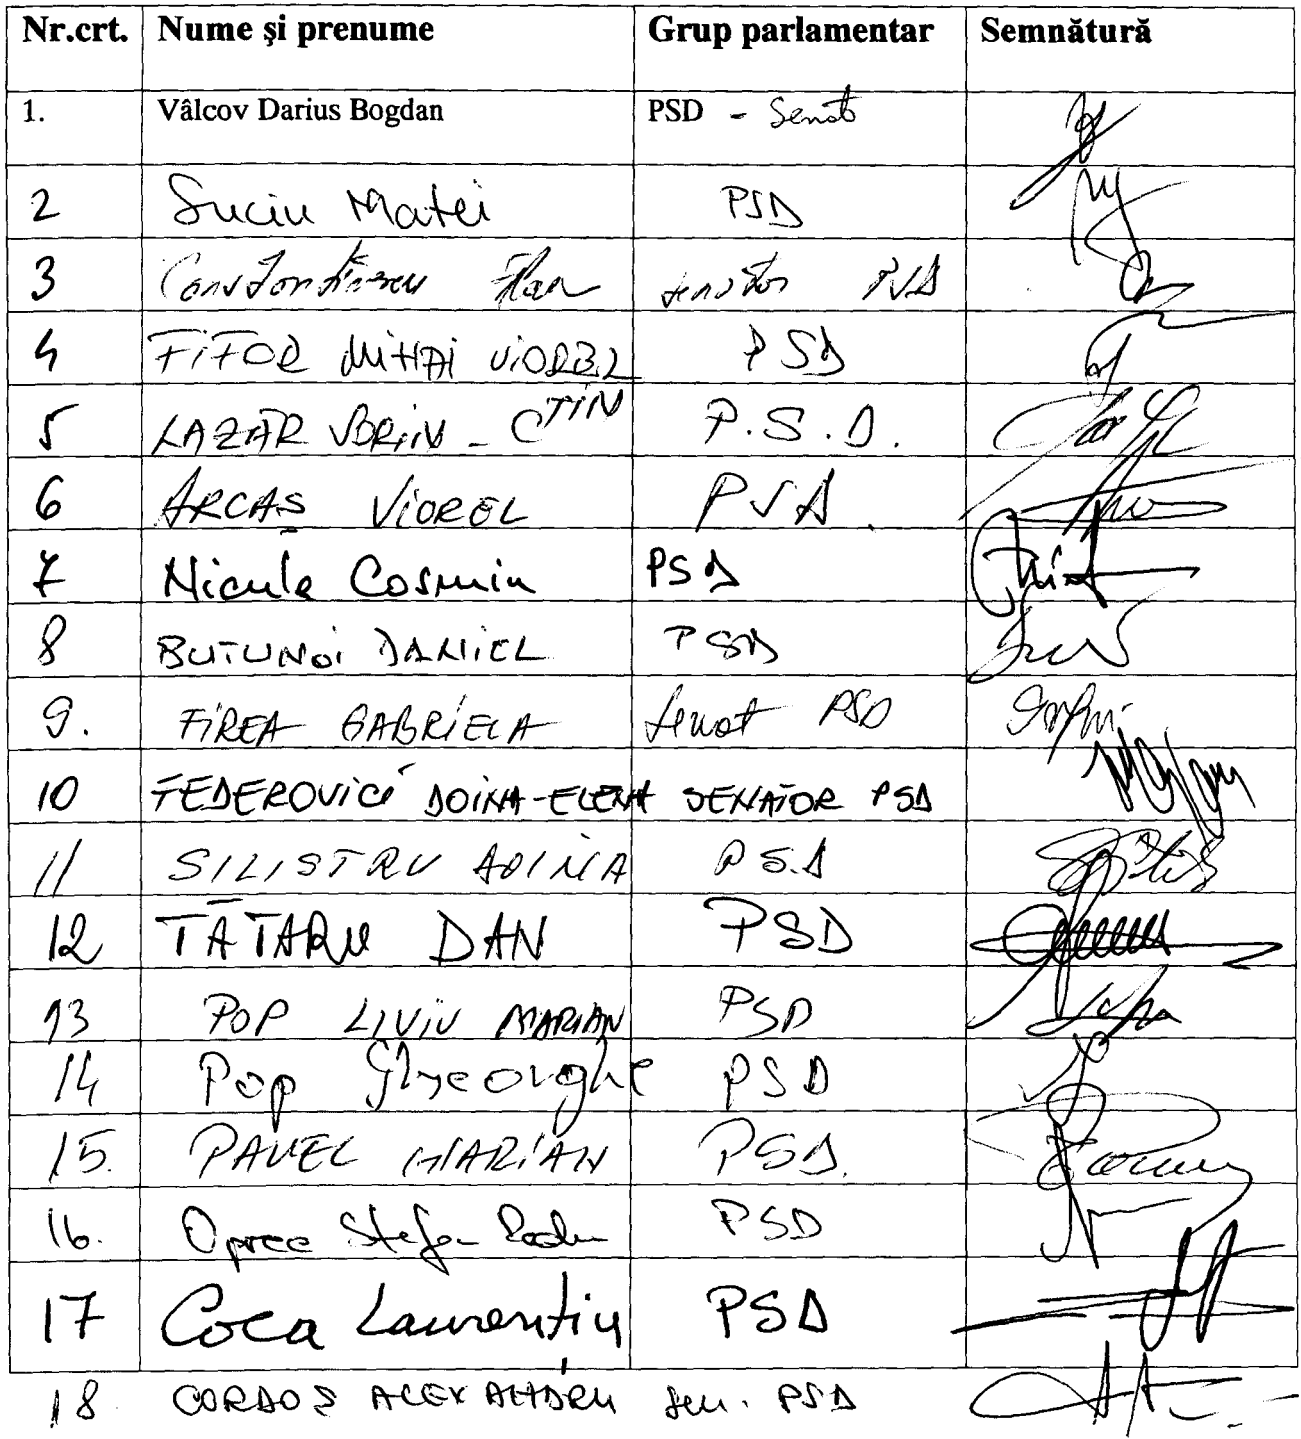 Nr.crt. Nume şi prenume Grup parlamentar Semnătură
1. Vâlcov Darius Bogdan PSD - Senat
2 Suciu Matei PSD
3 Constantinescu senator PSD
4 FIFOR MIHAI VIOREL PSD
5 LAZĂR SORIN - CTIN P.S.D.
6 ARCAŞ VIOREL PSD
7 Nicula Cosmin PSD
8 BUTUNOI DANIEL PSD
9. FIREA GABRIELA Senat PSD
10 FEDEROVICI DOINA-ELENA SENATOR PSD
11 SILISTRU DOINA PSD
12 TĂTARU DAN PSD
13 POP LIVIU MARIAN PSD
14 Pop Gheorghe PSD
15. PAVEL MARIAN PSD.
16. Oprea Stefan Radu PSD
17 Coca Laurenţiu PSD
18 CORDOŞ ALEXANDRU sen. PSD